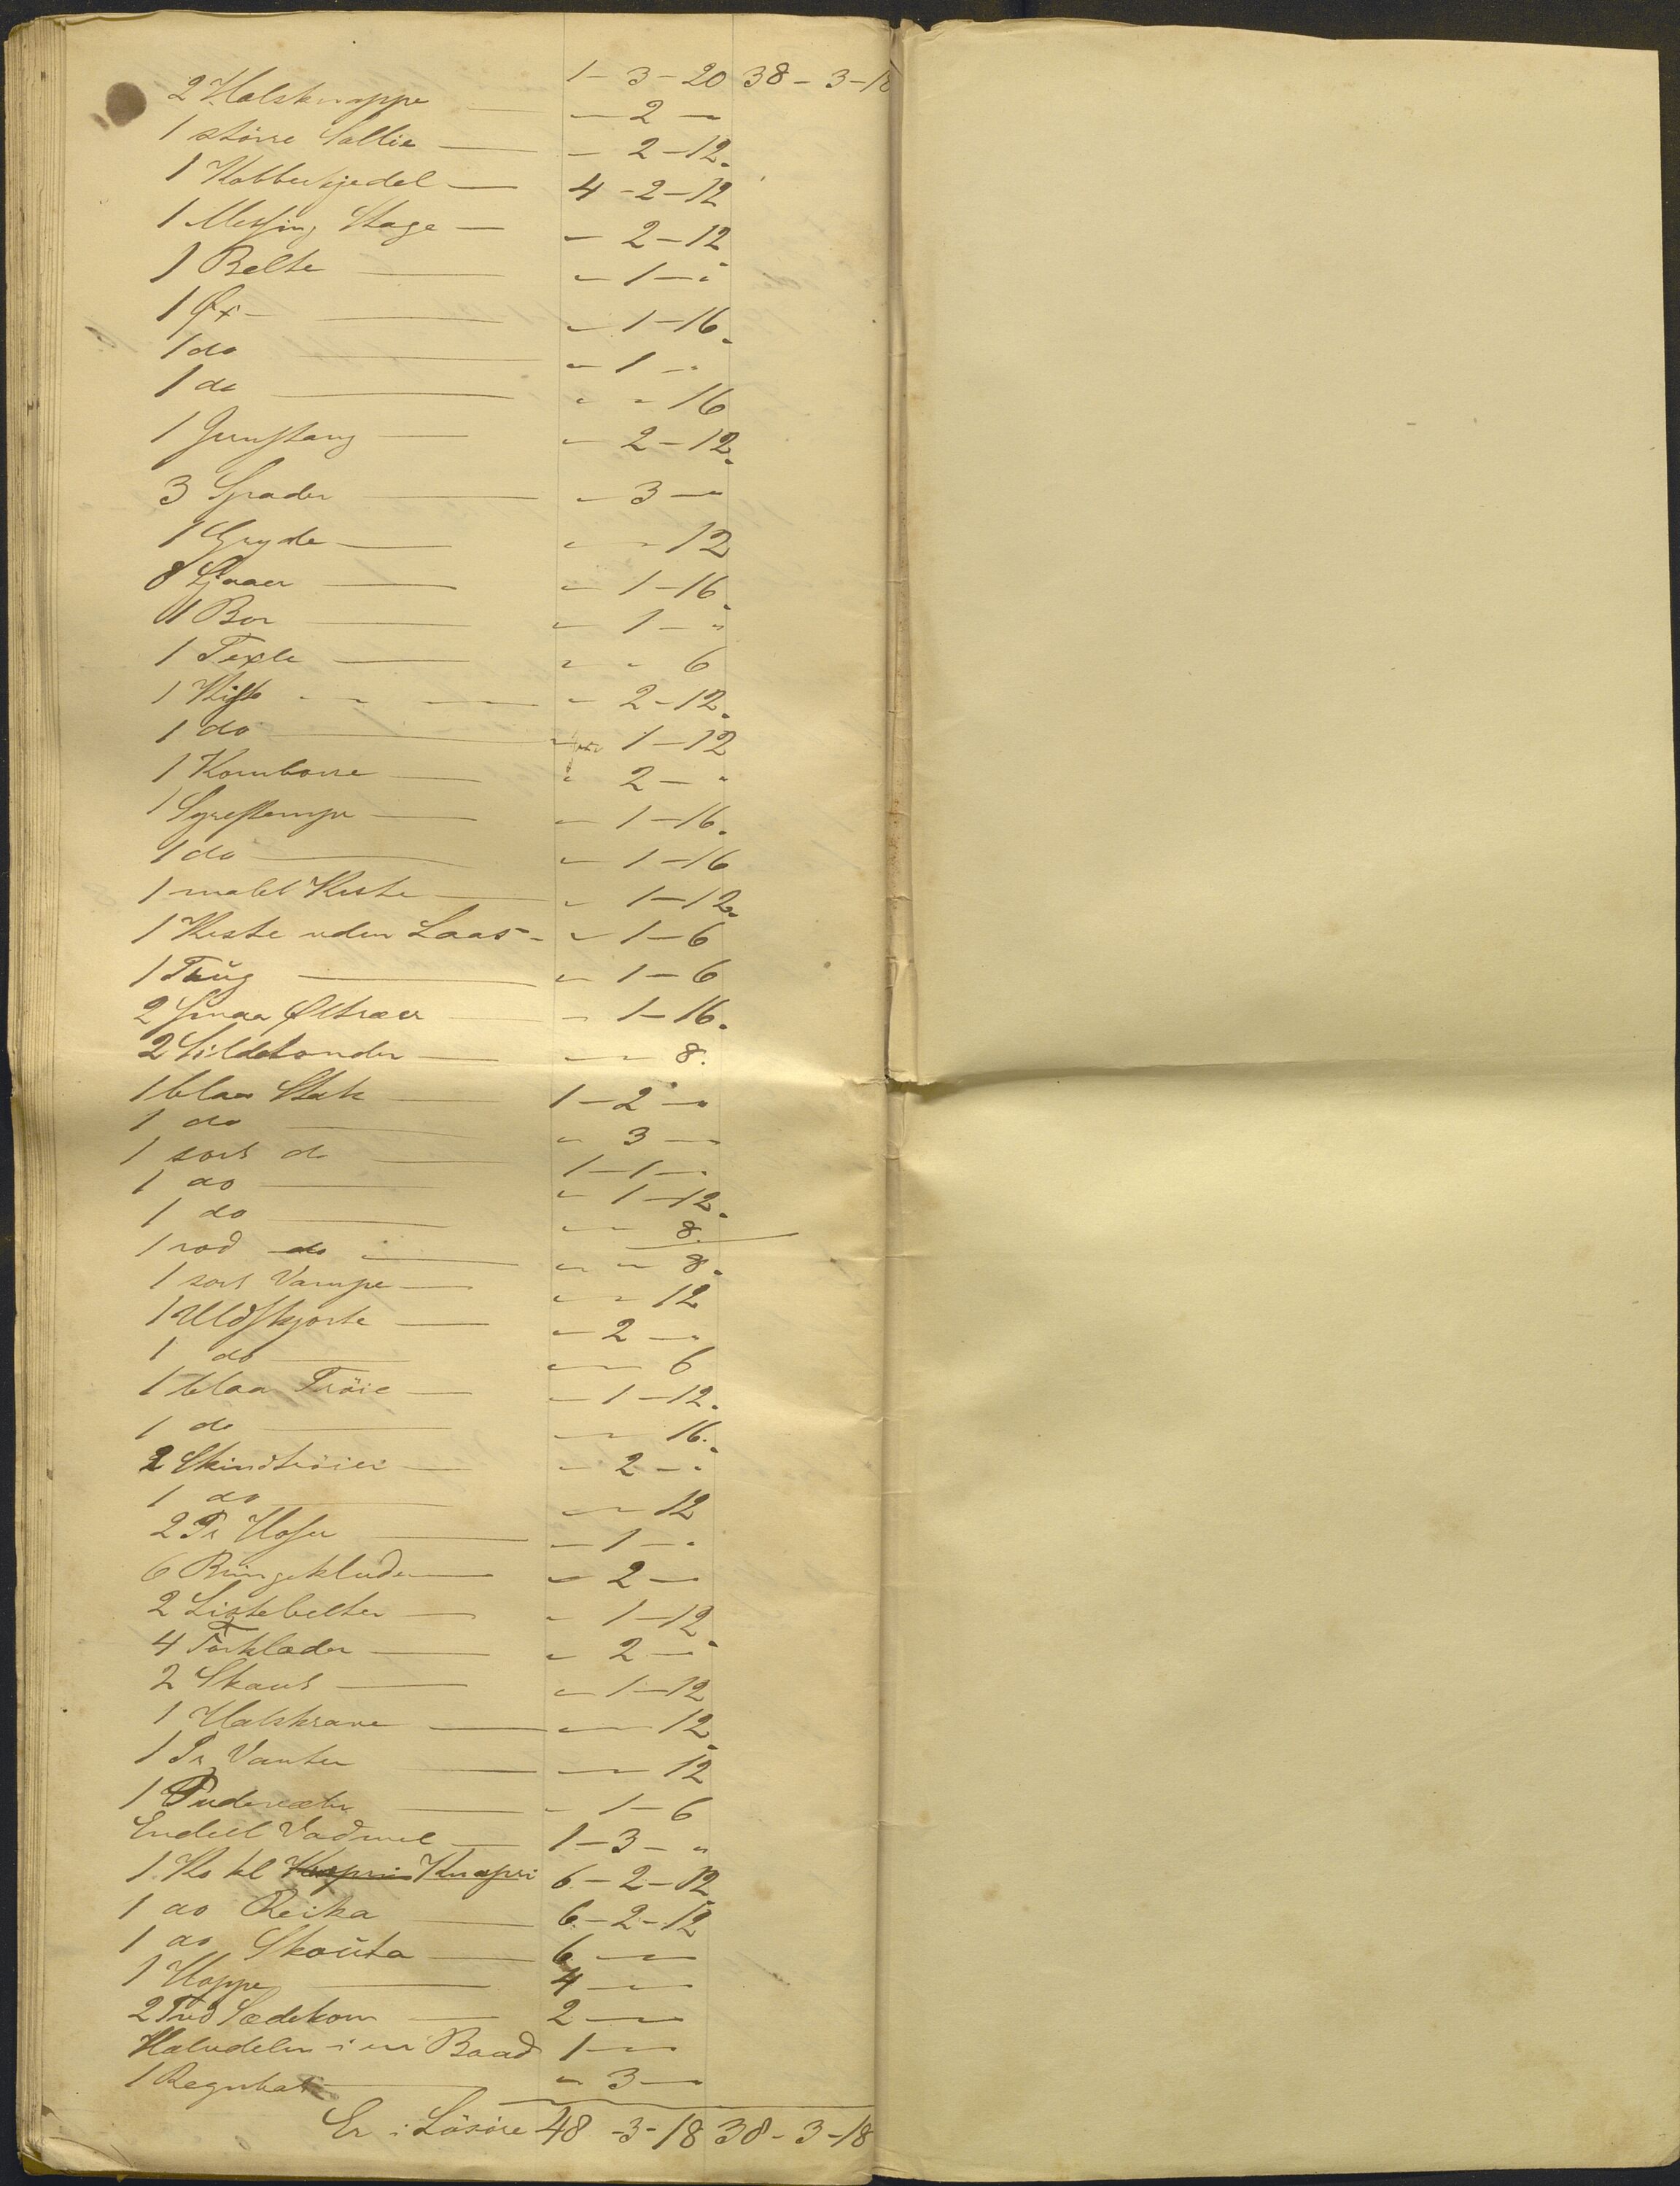 1 – 3 – 20 38 – 3 – 18
2 Halsknappe — " 2 — "
1 större Sollie — " 2 – 12
1 Kobberkjedel — 4 – 2 – 12
1 Messing Stage — " 2 – 12
1 Belte — " 1 — "
1 Øx — " 1 – 16
1 do — " 1 — "
1 do — " " 16
1 Jernstang — " 2 – 12
3 Spader — " 3 — "
1 Gryde — " " 12
8 Ljaaer — " 1 – 16
11 Bor — " 1 — "
1 Texle — " " 6
1 Kiste — " 2 – 12
1 do — " 1 – 12
1 Kornborre — " 2 — "
1 Syrestamp — " 1 – 16
1 do — " 1 – 16
1 malet Kiste — " 1 – 12
1 Kiste uden Laas – " 1 – 6
1 Trüg — " 1 – 6
2 smaa Øltræer — " 1 – 16
2 Sildetønder — " " 8
1 blaa Stak — 1 – 2 — "
1 do — " 3 — "
1 sort do — 1 – 1 — "
1 do — " 1 – 12
1 do — " " 8
1 rød do — " " 8
1 sort Vampe — " " 12
1 Uldskjorte — " 2 — "
1 do — " " 6
1 blaa Tröie — " 1 – 12
1 do — " " 16
2 Skindtröier — " 2 — "
1 do — " " 12
2 Pr Hoser — " 1 — "
6 Ringekluder — " 2 — "
2 Listebelter — " 1 – 12
4 Forklæder — " 2 — "
2 Skaut — " 1 – 12
1 Halskrave — " " 12
1 Pr Vanter — " " 12
1 Pudevær — " 1 – 6
Endeel Vadmel — 1 – 3 – "
1 Ko kl Knapri 6 – 2 – 12
1 do Reika — 6 – 2 – 12
1 do Skaüta — 6 — "
1 Hoppe — 4 — "
2 Tnd Sædekorn — 2 — "
Halvdelen i en Baad 1 — "
1 — " 3 — "
Er i Lösöre 48 – 3 – 18 38 – 3 – 18